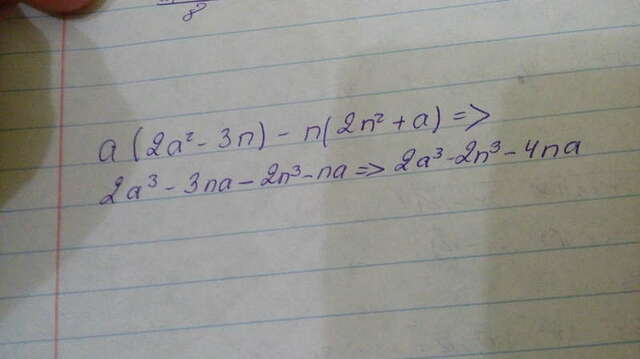 a(2a² - 3n) - n(2n² + a) =>
2a³ - 3na - 2n³ - na => 2a³ - 2n³ - 4na